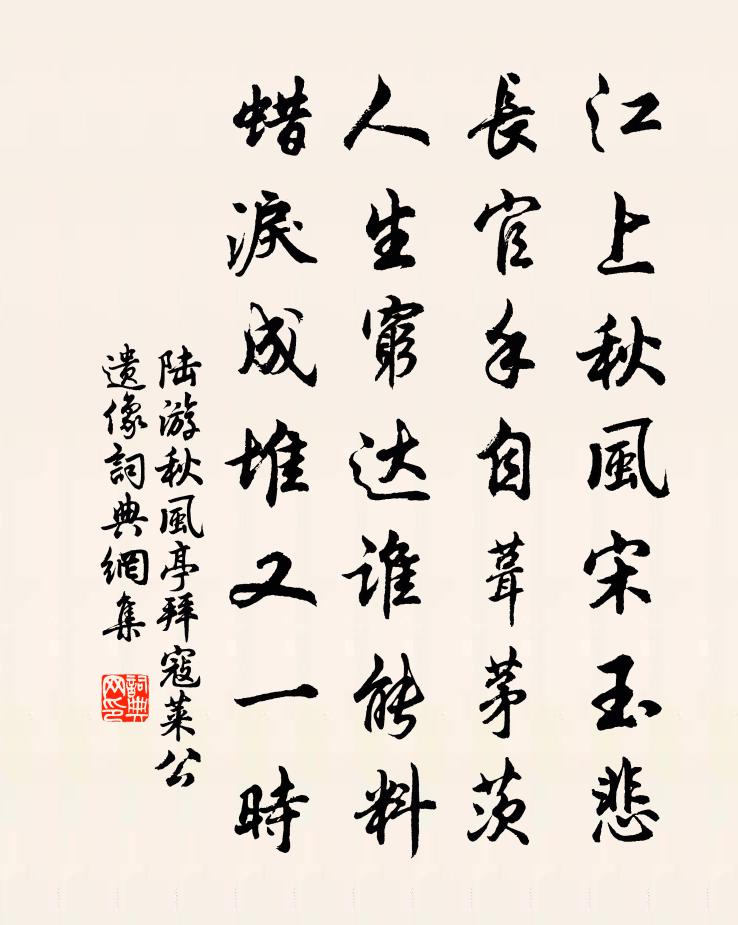 江上秋風宋玉悲
長官手自葺茅茨
人生窮达誰能料
蜡淚成堆又一時
陆游秋風亭拜寇莱公
遺像詞典網集
詞典
网印